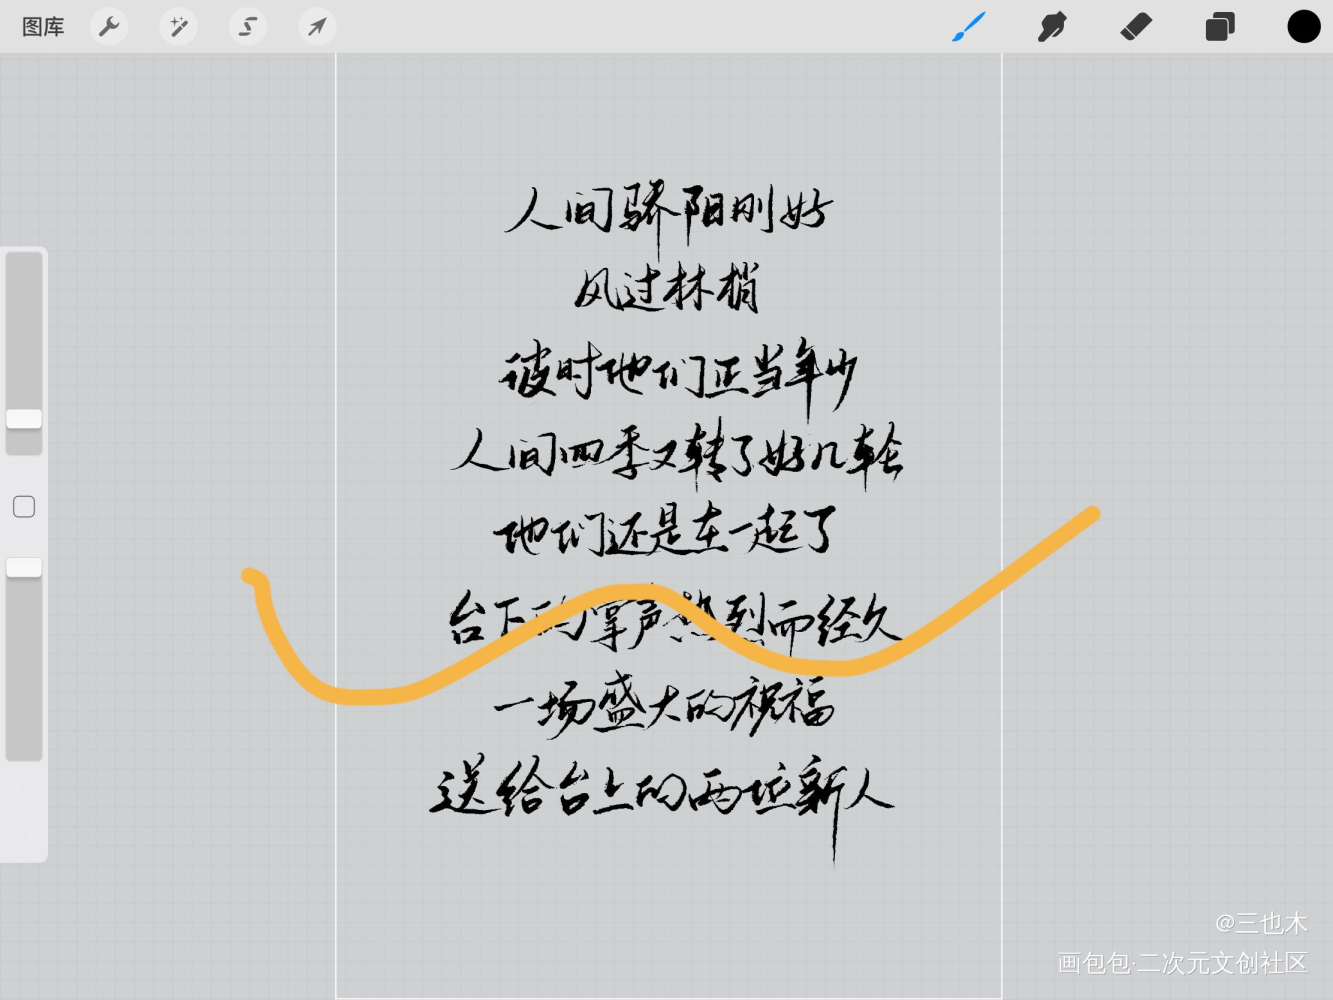 图库
人间骄阳刚好
风过林梢
彼时他们正当年少
人间四季又转了好几轮
他们还是在一起了
台下的掌声热烈而经久
一场盛大的祝福
送给台上的两位新人
@三也木
画包包·二次元文创社区